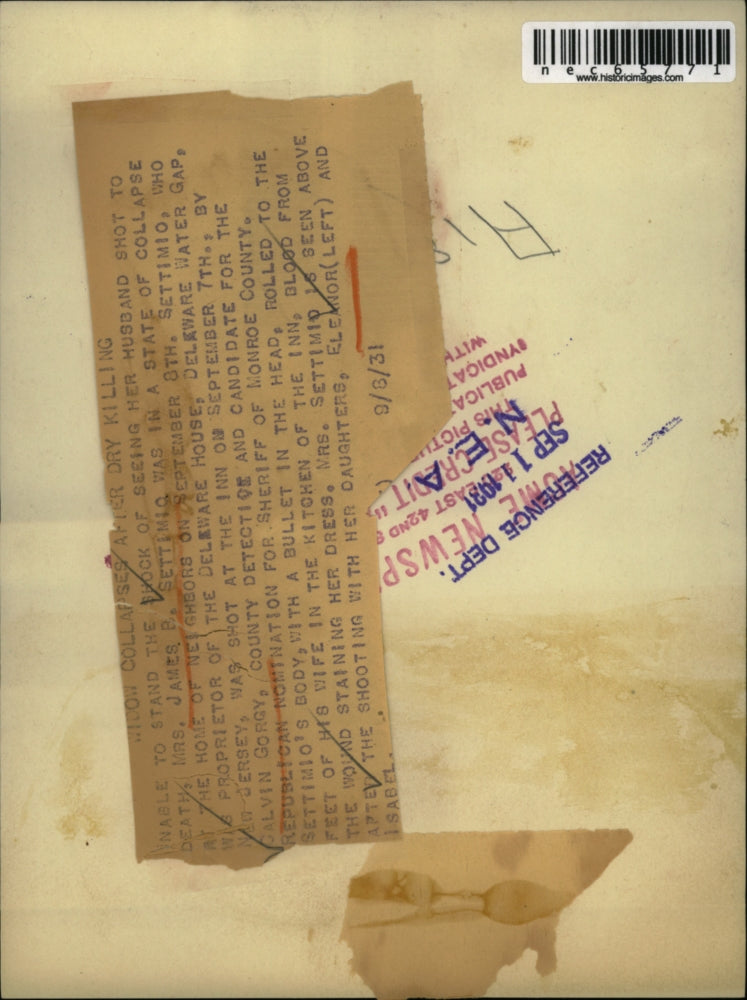 nec65771
www.historicimages.com
WIDOW COLLAPSES AFTER DRY KILLING
UNABLE TO STAND THE SHOCK OF SEEING HER HUSBAND SHOT TO
DEATH, MRS. JAMES B. SETTIMIO WAS IN A STATE OF COLLAPSE
AT THE HOME OF NEIGHBORS ON SEPTEMBER 8TH. SETTIMIO, WHO
WAS PROPRIETOR OF THE DELAWARE HOUSE, DELAWARE WATER GAP,
NEW JERSEY, WAS SHOT AT THE INN ON SEPTEMBER 7TH., BY
CALVIN GORGY, COUNTY DETECTIVE AND CANDIDATE FOR THE
REPUBLICAN NOMINATION FOR SHERIFF OF MONROE COUNTY.
SETTIMIO'S BODY, WITH A BULLET IN THE HEAD, ROLLED TO THE
FEET OF HIS WIFE IN THE KITCHEN OF THE INN, BLOOD FROM
THE WOUND STAINING HER DRESS. MRS. SETTIMIO IS SEEN ABOVE
AFTER THE SHOOTING WITH HER DAUGHTERS, ELEANOR(LEFT) AND
ISABEL.
9/8/31
REFERENCE DEPT.
SEP 11 1931
N. E. A.
PLEASE CREDIT
ACME NEWSP
EAST 42ND S
THIS PICTU
PUBLICA
SYNDICAT
WITH